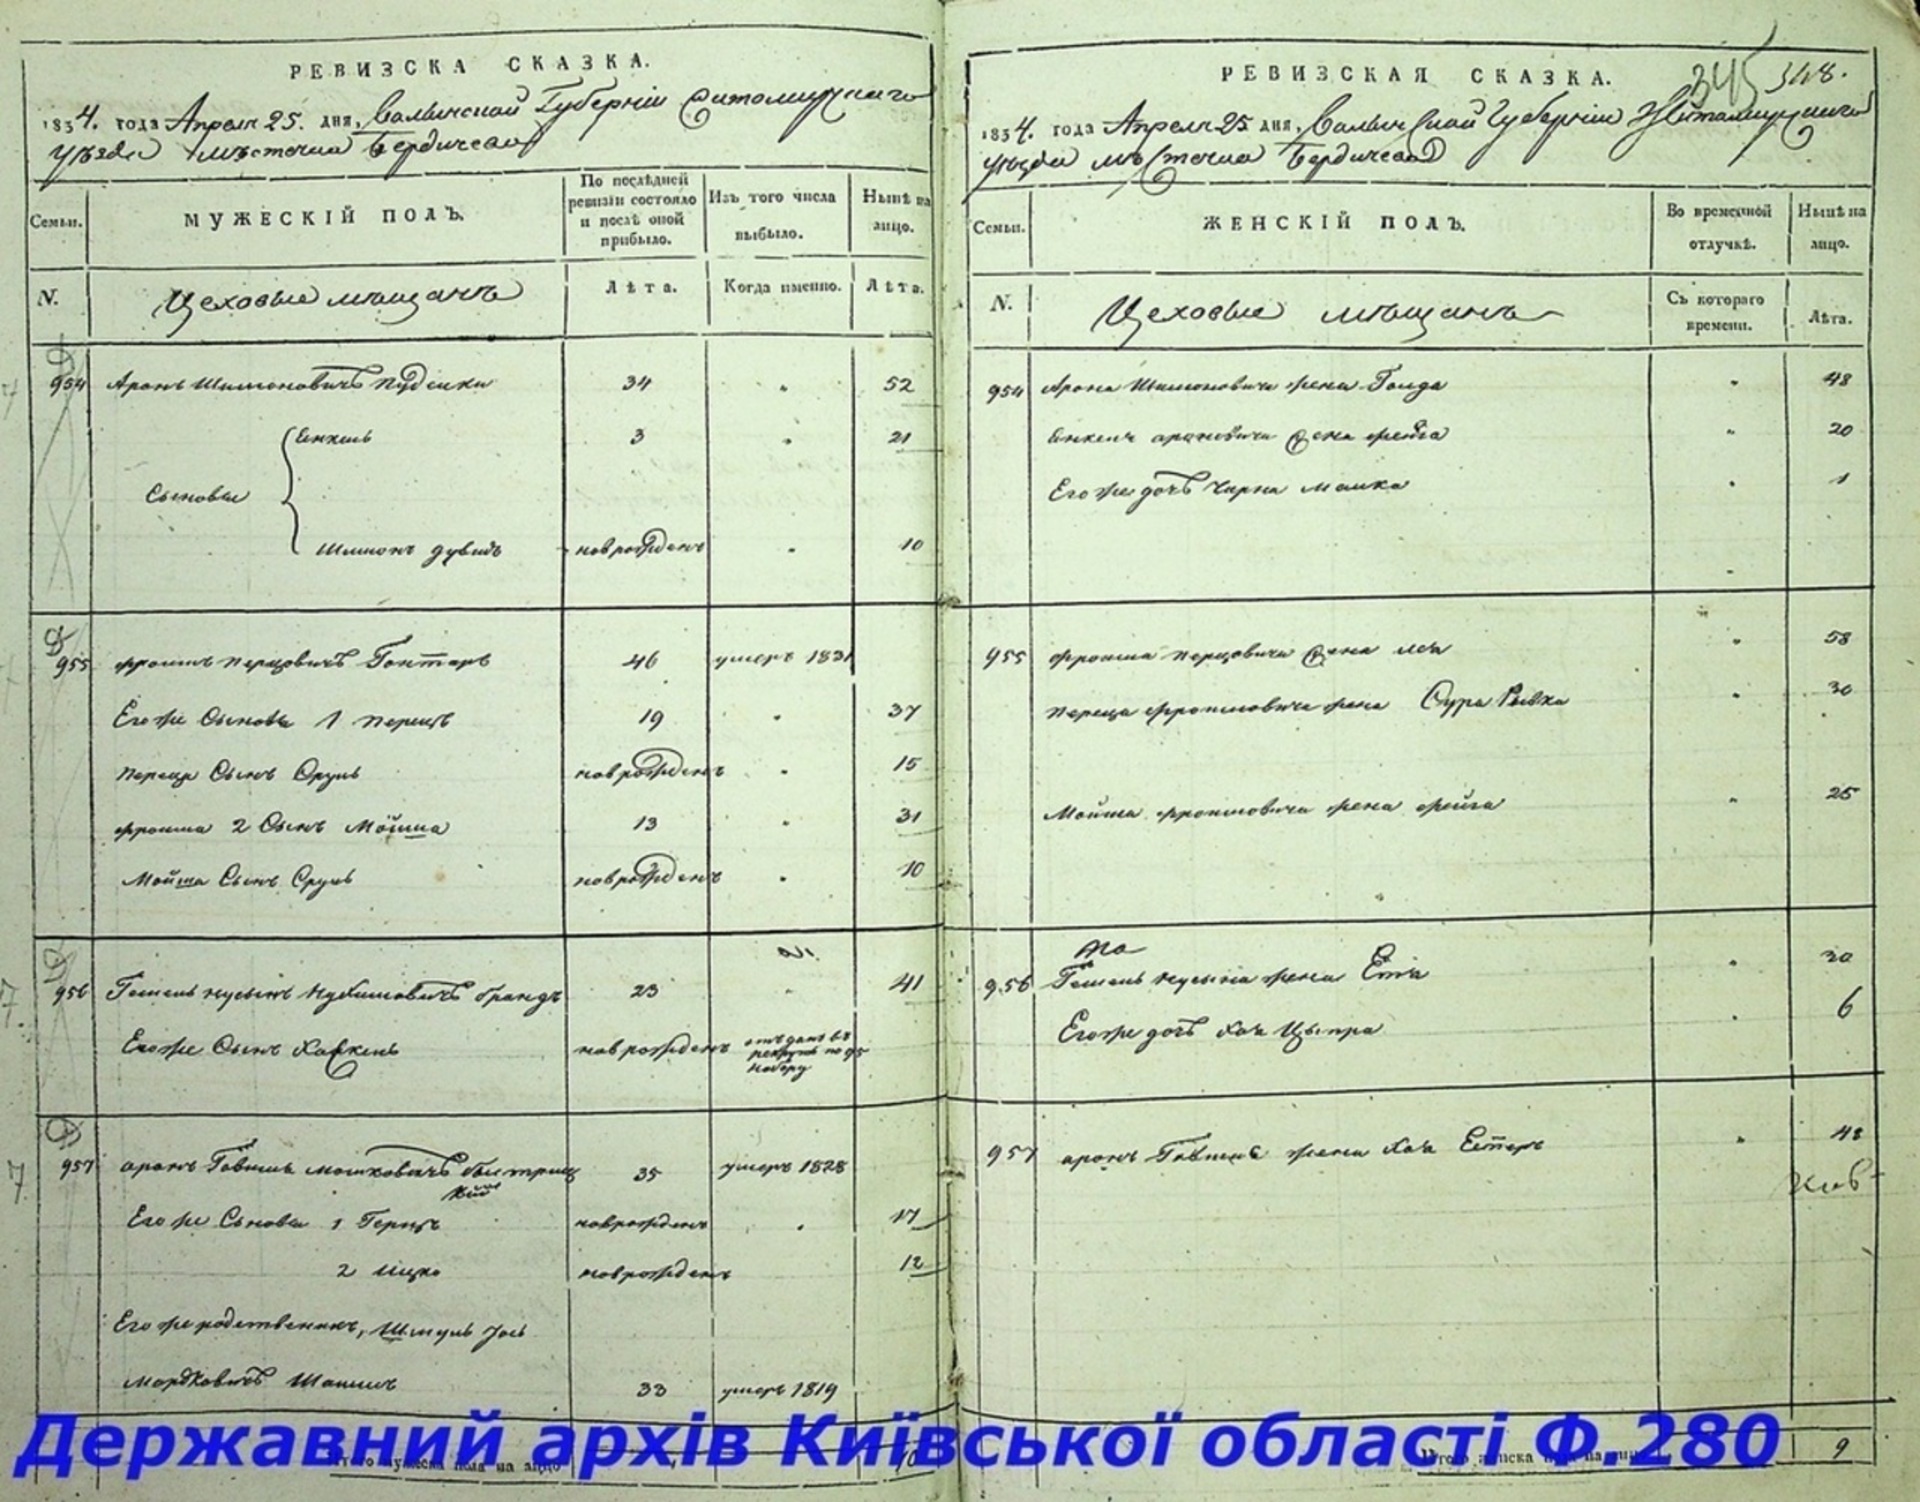 РЕВИЗСКА СКАЗКА.
1834. года Апреля 25. дня, Волынской Губернiи Житомирскаго
уѣзда мѣстечка Бердичева
Семьи.
МУЖЕСКІЙ ПОЛЪ.
По послѣдней ревизіи состояло и послѣ оной прибыло.
Изъ того числа выбыло.
Нынѣ на лицо.
N.
Цеховые мѣщанъ
Лѣта.
Когда именно.
Лѣта.
954 Аронъ Шимоновичъ 34 " 52
Енкель 3 " 21
Сыновья
Шимонъ дувидъ новрожденъ " 10
955 Фроимъ Перцовичъ Гонтаръ 46 умеръ 1831
Его же Сыновья 1 Перецъ 19 " 37
Переца Сынъ Сруль новрожденъ " 15
Фроима 2 Сынъ Мойша 13 " 31
Мойша Сынъ Сруль новрожденъ " 10
956 23 " 41
Его же Сынъ новрожденъ отъданъ въ
рекруты по 95
набору
957 Аронъ Мошковичъ быстриц
кій 35 умеръ 1828
Его же Сыновья 1 Герцъ новрожденъ " 17
2 Ицко новрожденъ 12
Его же родственникъ, Шмуль Іось
Мордковичъ 33 умеръ 1819
Итого мужеска пола на лицо 10
РЕВИЗСКАЯ СКАЗКА.
345 348.
1834. года Апреля 25 дня, Волынской Губернiи Житомирскаго
уѣзда мѣстечка Бердичева
Семьи.
ЖЕНСКІЙ ПОЛЪ.
Во временной отлучкѣ.
Нынѣ на лицо.
N.
Цеховые мѣщанъ
Съ котораго времени.
Лѣта.
954 Арона Шимоновича жена Голда " 48
Енкеля ароновича жена фейга " 20
Его же дочь Чарна Малка " 1
955 Фроима Перцовича жена Леа " 58
Переца Фроимовича жена Сура Ривка " 30
Мойша Фроимовича жена фейга " 25
956 жена " 30
Его же дочь Хая Цыпра " 6
957 аронъ жена Хая Естеръ " 48
Итого женска пола на лицо 9
Державний архів Київської області Ф.280